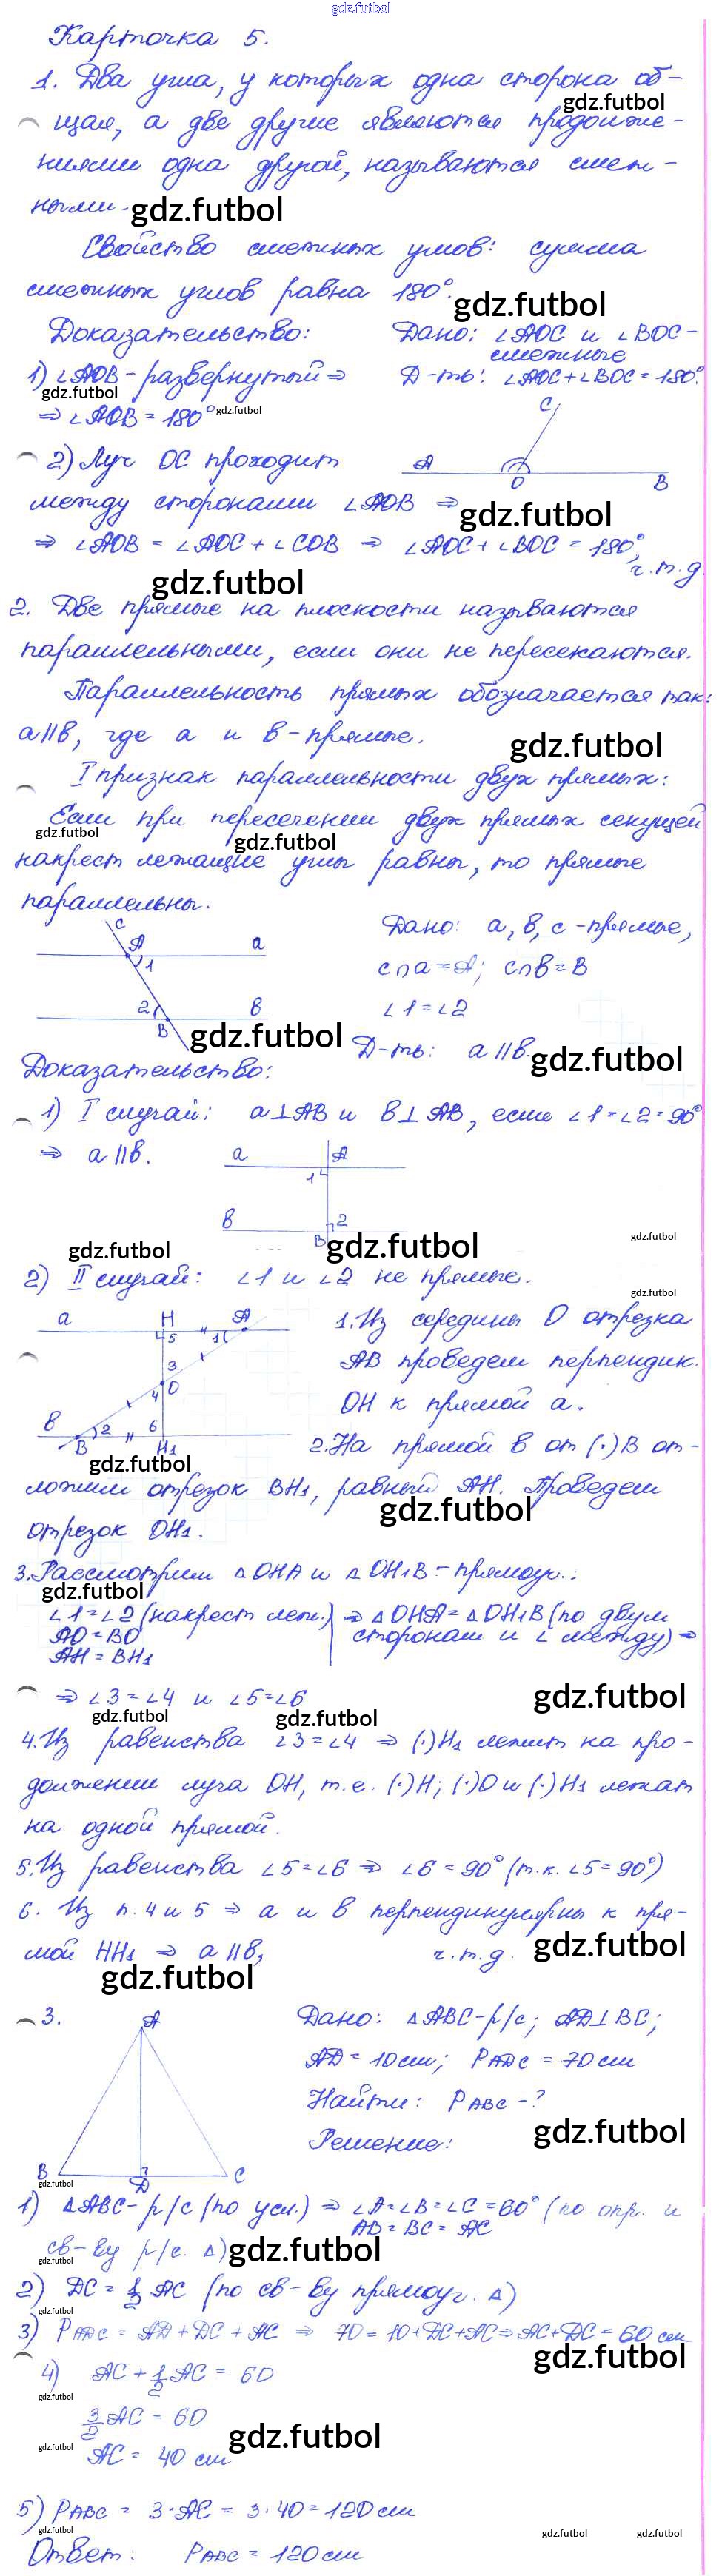 gdz.futbol
Карточка 5.
1. Два угла, у которых одна сторона об-
gdz.futbol
щая, а две другие являются продолже-
ниями одна другой, называются смеж-
ными. gdz.futbol
Свойство смежных углов: сумма
смежных углов равна 180°.
gdz.futbol
Доказательство: Дано: ∠AOC и ∠BOC -
смежные
1) ∠AOB - развернутый ⇒ Д-ть: ∠AOC + ∠BOC = 180°.
gdz.futbol
⇒ ∠AOB = 180° gdz.futbol
C
2) Луч OC проходит A O B
между сторонами ∠AOB ⇒
gdz.futbol
⇒ ∠AOB = ∠AOC + ∠COB ⇒ ∠AOC + ∠BOC = 180°,
ч.т.д.
gdz.futbol
2. Две прямые на плоскости называются
параллельными, если они не пересекаются.
Параллельность прямых обозначается так:
a || в, где a и в - прямые.
gdz.futbol
I признак параллельности двух прямых:
Если при пересечении двух прямых секущей
gdz.futbol gdz.futbol
накрест лежащие углы равны, то прямые
параллельны.
C A a 1
2 в B
Дано: a, в, c - прямые,
c∩a = A; c∩в = B
∠1 = ∠2
gdz.futbol
Д-ть: a || в. gdz.futbol
Доказательство:
1) I случай: a ⊥ AB и в ⊥ AB, если ∠1 = ∠2 = 90°
⇒ a || в.
a A 1
в 2 B
gdz.futbol gdz.futbol gdz.futbol
2) II случай: ∠1 и ∠2 не прямые.
gdz.futbol
a H A 5 1
3 O 4
в 2 6 B H1
1. Из середины O отрезка
AB проведем перпендик.
OH к прямой a.
2. На прямой в от (·)B от-
gdz.futbol
ложим отрезок BH1, равный AH. Проведем
gdz.futbol
отрезок OH1.
3. Рассмотрим △OHA и △OH1B - прямоуг.:
gdz.futbol
∠1 = ∠2 (накрест леж.) ⇒ △OHA = △OH1B (по двум
AO = BO сторонам и ∠ между) ⇒
AH = BH1
⇒ ∠3 = ∠4 и ∠5 = ∠6
gdz.futbol
gdz.futbol gdz.futbol
4. Из равенства ∠3 = ∠4 ⇒ (·)H1 лежит на про-
должении луча OH, т.е. (·)H; (·)O и (·)H1 лежат
на одной прямой.
5. Из равенства ∠5 = ∠6 ⇒ ∠6 = 90° (т.к. ∠5 = 90°)
6. Из п. 4 и 5 ⇒ a и в перпендикулярны к пря-
мой HH1 ⇒ a || в, ч.т.д. gdz.futbol
gdz.futbol
3.
A
B D C
Дано: △ABC - р/с; AD ⊥ BC;
AD = 10 см; PADC = 70 см
Найти: PABC - ?
gdz.futbol
Решение:
gdz.futbol
1) △ABC - р/с (по усл.) ⇒ ∠A = ∠B = ∠C = 60° (по опр. и
AB = BC = AC
св-ву р/с. △) gdz.futbol
gdz.futbol
2) DC = 1/2 AC (по св-ву прямоуг. △)
gdz.futbol
3) PADC = AD + DC + AC ⇒ 70 = 10 + DC + AC ⇒ AC + DC = 60 см
gdz.futbol
4) AC + 1/2 AC = 60
gdz.futbol
3/2 AC = 60
gdz.futbol
gdz.futbol
AC = 40 см
5) PABC = 3·AC = 3·40 = 120 см
gdz.futbol gdz.futbol gdz.futbol
Ответ: PABC = 120 см